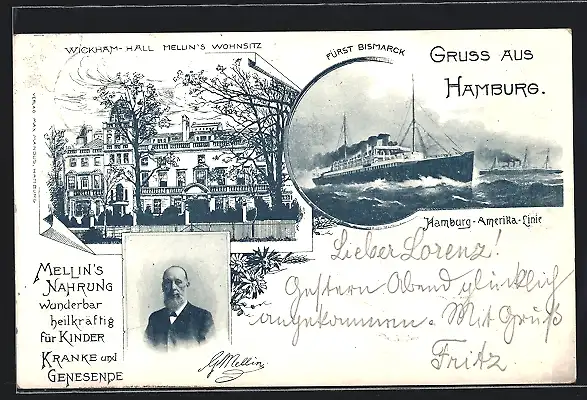 WICKHAM-HALL MELLIN'S WOHNSITZ
FÜRST BISMARCK
GRUSS AUS
HAMBURG.
VERLAG MAX MARCUS, HAMBURG
Hamburg-Amerika-Linie
MELLIN'S
NAHRUNG
wunderbar
heilkräftig
für KINDER
KRANKE und
GENESENDE
G. Mellin
Lieber Lorenz!
Gestern Abend glücklich
angekommen. Mit Gruß
Fritz